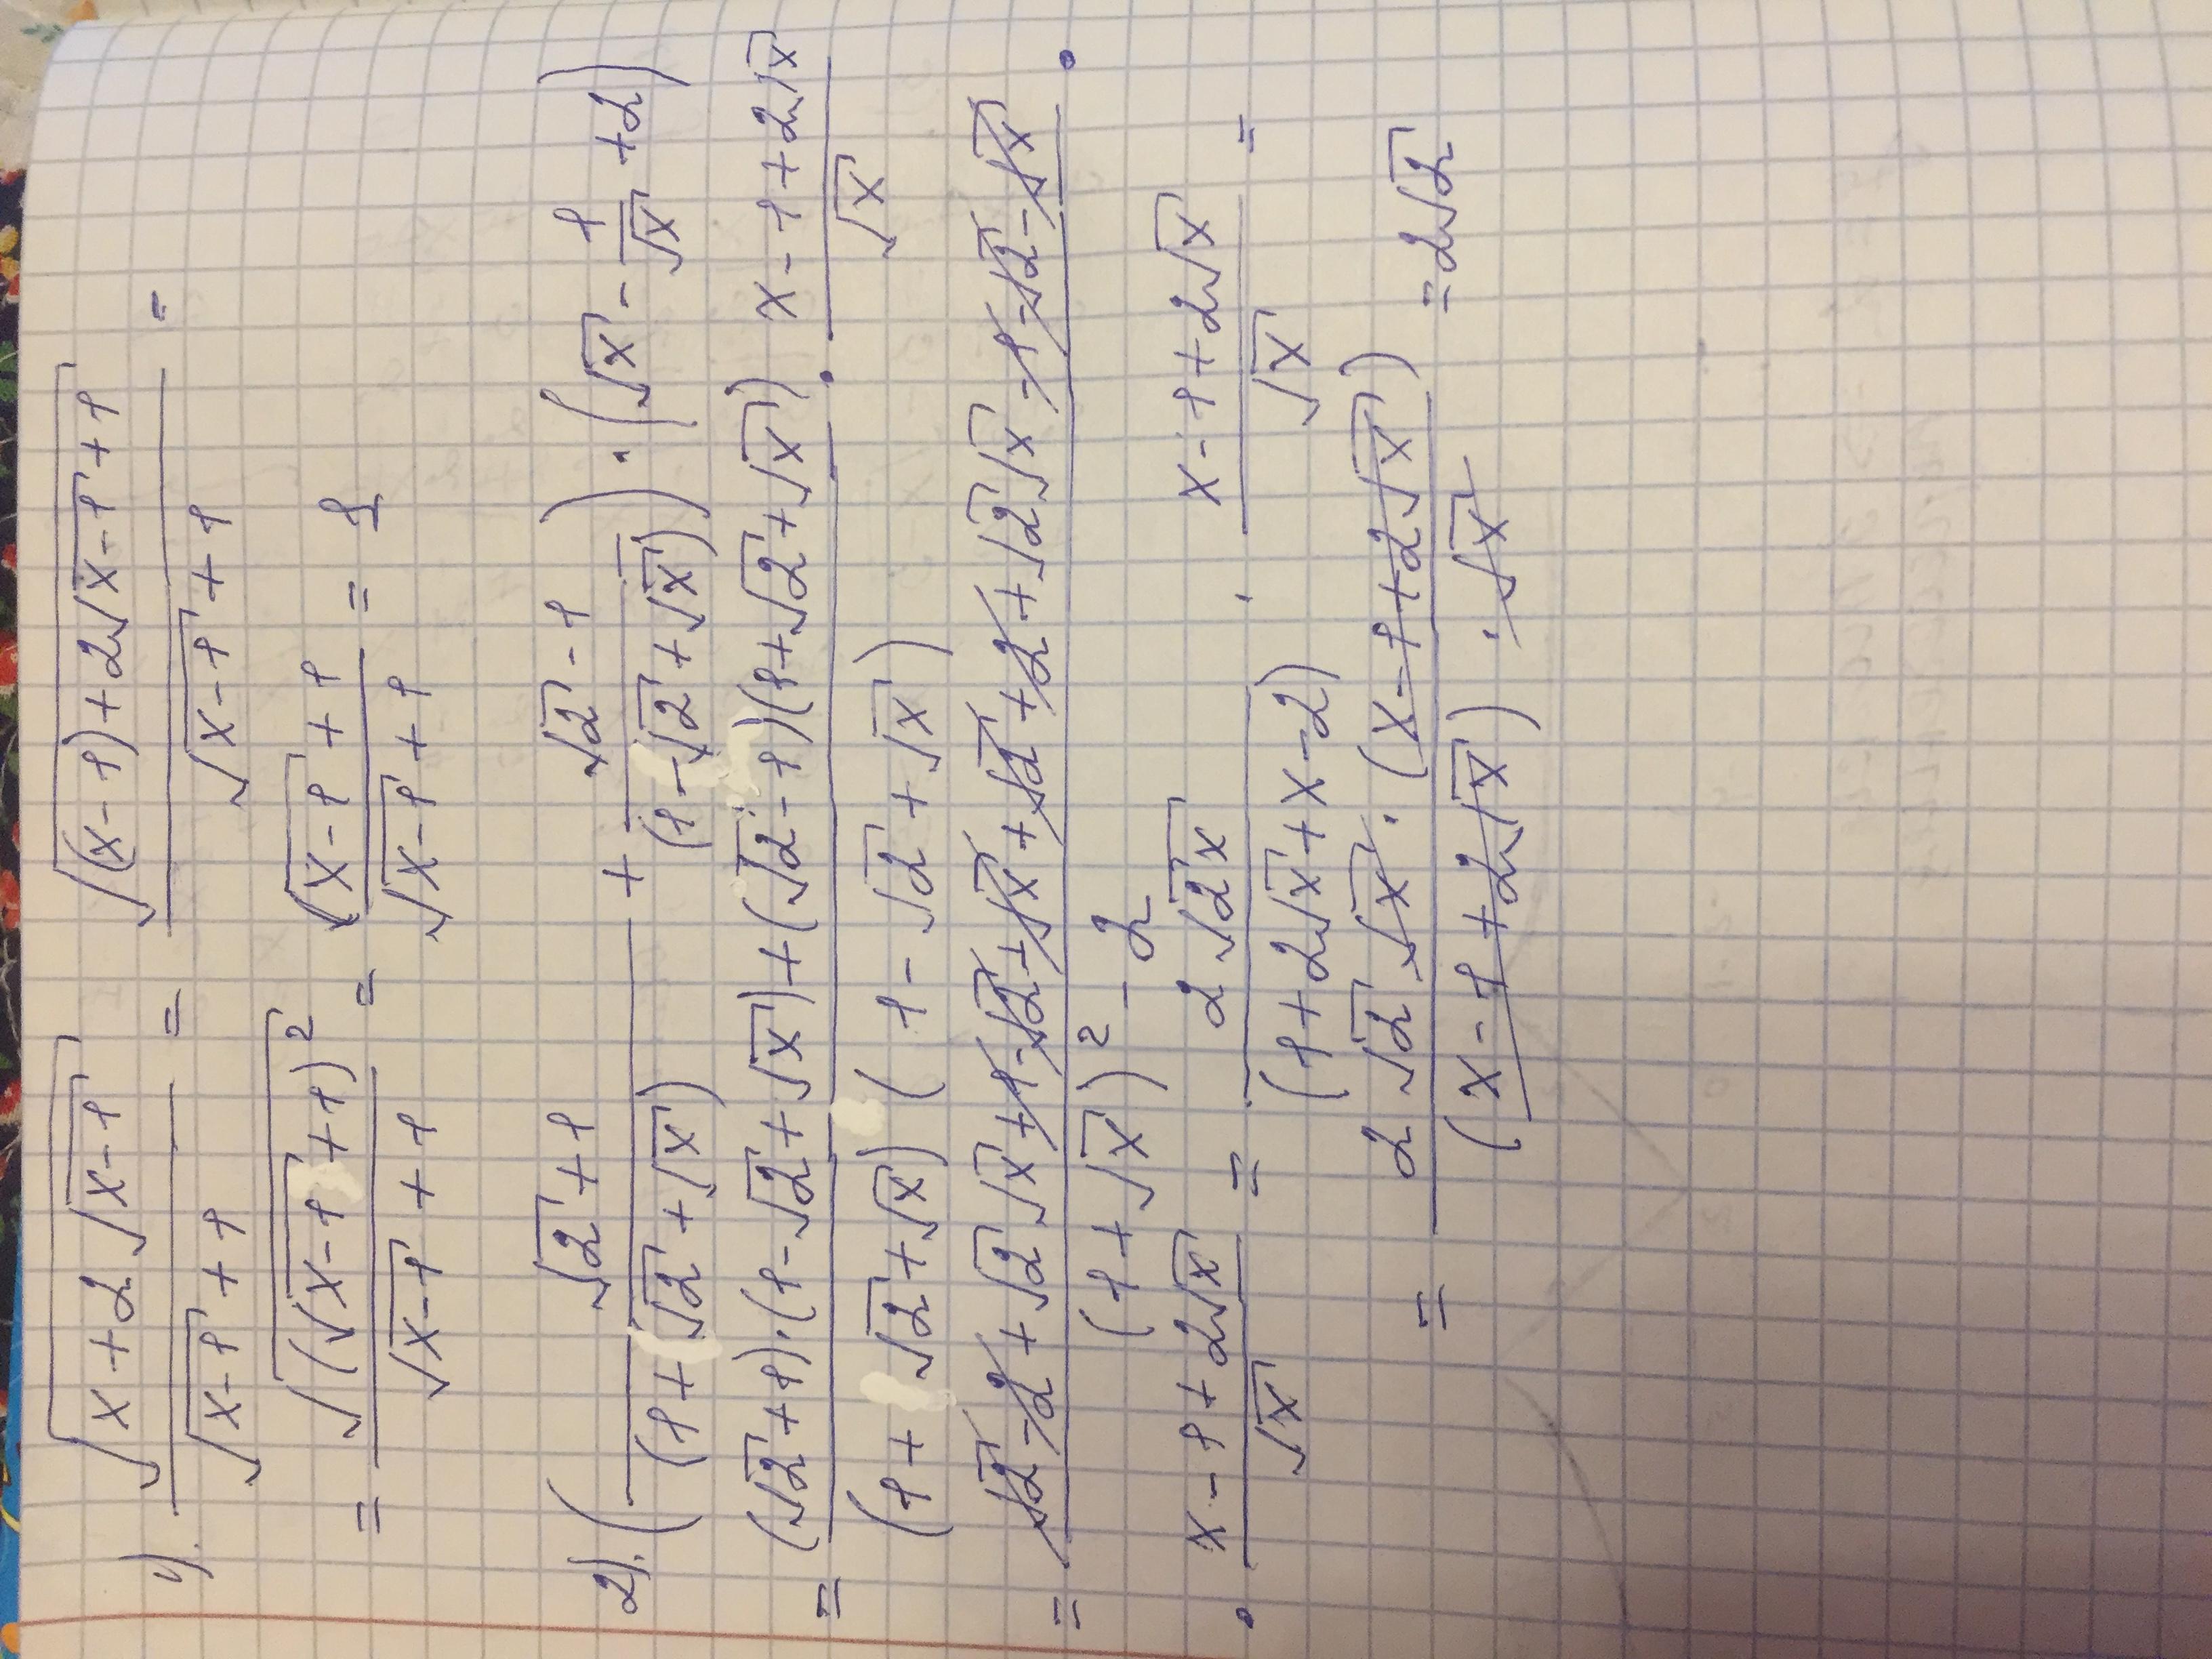 1). √(x+2√(x-1)) / (√(x-1)+1) = √((x-1)+2√(x-1)+1) / (√(x-1)+1) =
= √((√(x-1)+1)²) / (√(x-1)+1) = (√(x-1)+1) / (√(x-1)+1) = 1
2). ( (√2+1) / (1+√2+√x) + (√2-1) / (1-√2+√x) ) · (√x - 1/√x + 2)
= ((√2+1)·(1-√2+√x)+(√2-1)(1+√2+√x)) / ((1+√2+√x)(1-√2+√x)) · (x-1+2√x) / √x
= (√2-2+√2√x+1-√2+√x+√2+2+√2√x-1-√2-√x) / ((1+√x)²-2) ·
· (x-1+2√x) / √x = 2√2√x / (1+2√x+x-2) · (x-1+2√x) / √x =
= 2√2√x·(x-1+2√x) / ((x-1+2√x)·√x) = 2√2